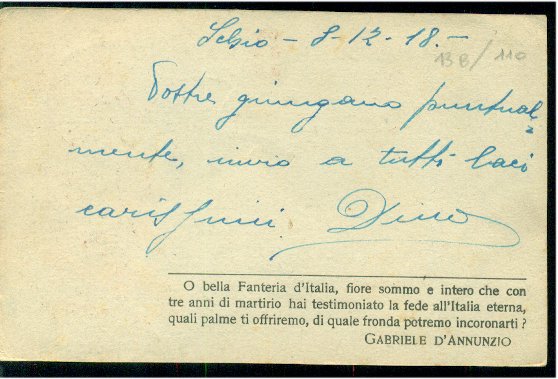 Schio - 8-12-18.-
138/110
Vostre giungano puntual=
mente, invio a tutti baci
carissimi Dino
O bella Fanteria d'Italia, fiore sommo e intero che con
tre anni di martirio hai testimoniato la fede all'Italia eterna,
quali palme ti offriremo, di quale fronda potremo incoronarti?
GABRIELE D'ANNUNZIO